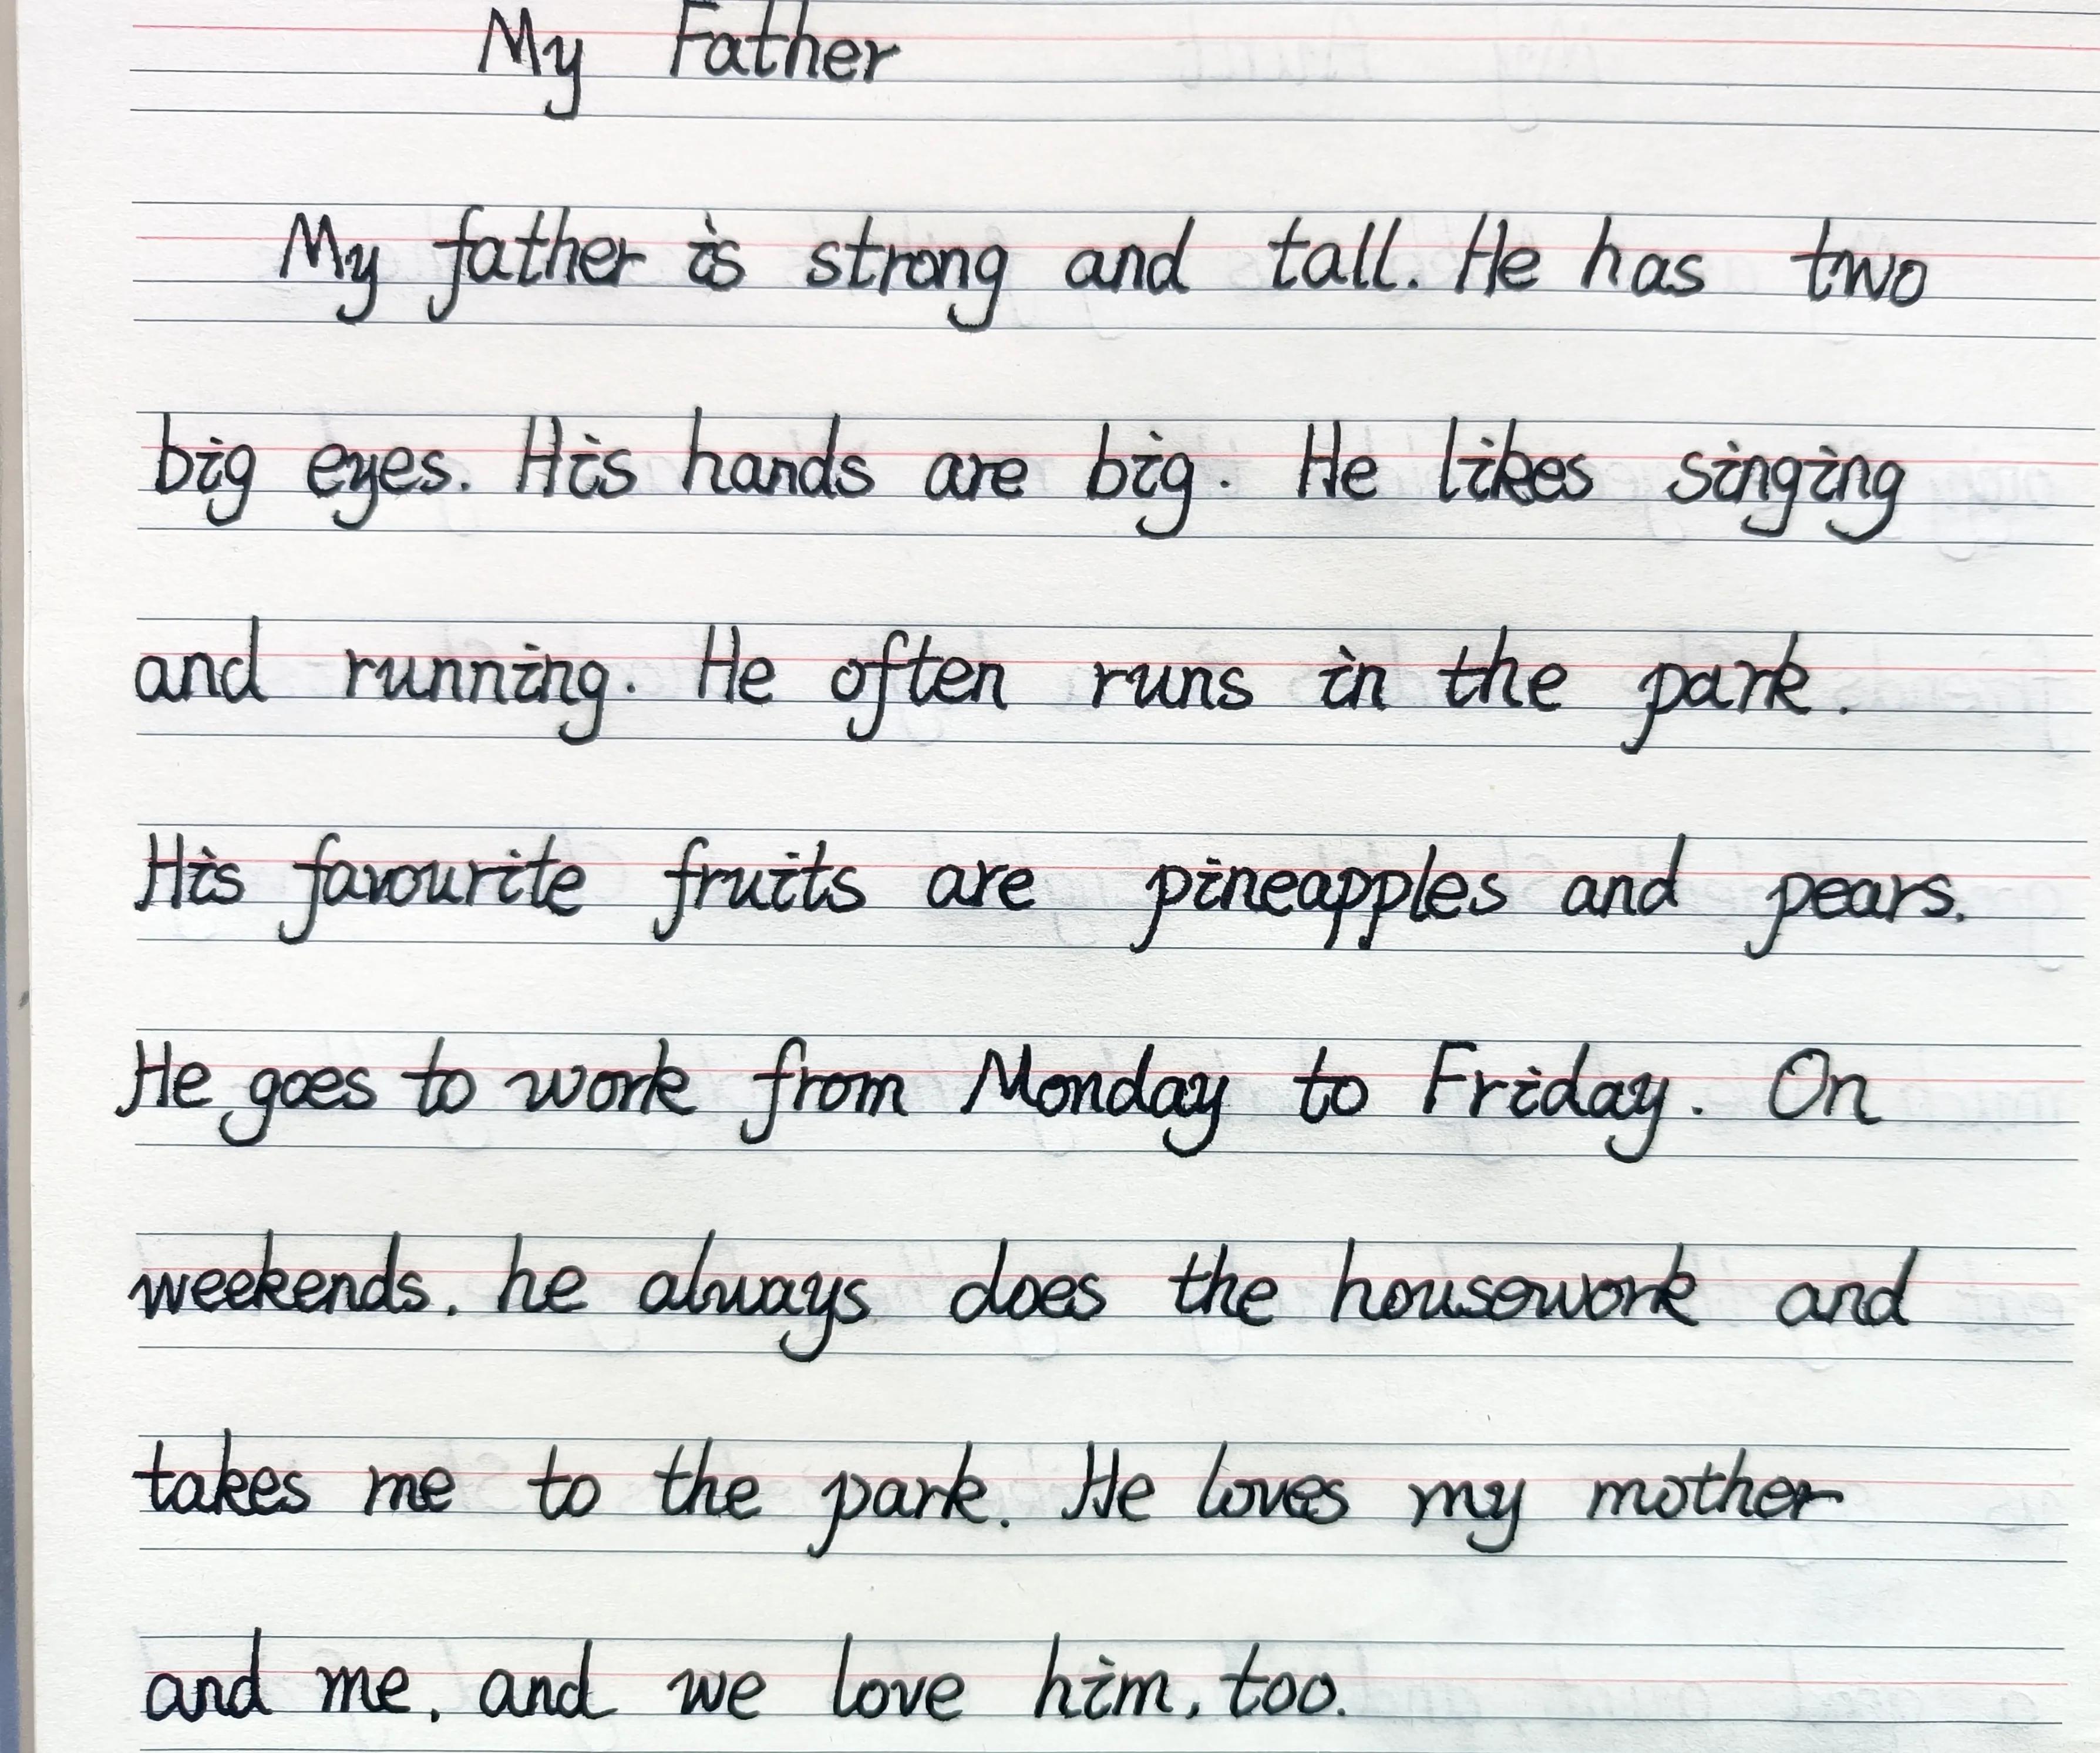 My Father
My father is strong and tall. He has two
big eyes. His hands are big. He likes singing
and running. He often runs in the park.
His favourite fruits are pineapples and pears.
He goes to work from Monday to Friday. On
weekends, he always does the housework and
takes me to the park. He loves my mother
and me, and we love him, too.